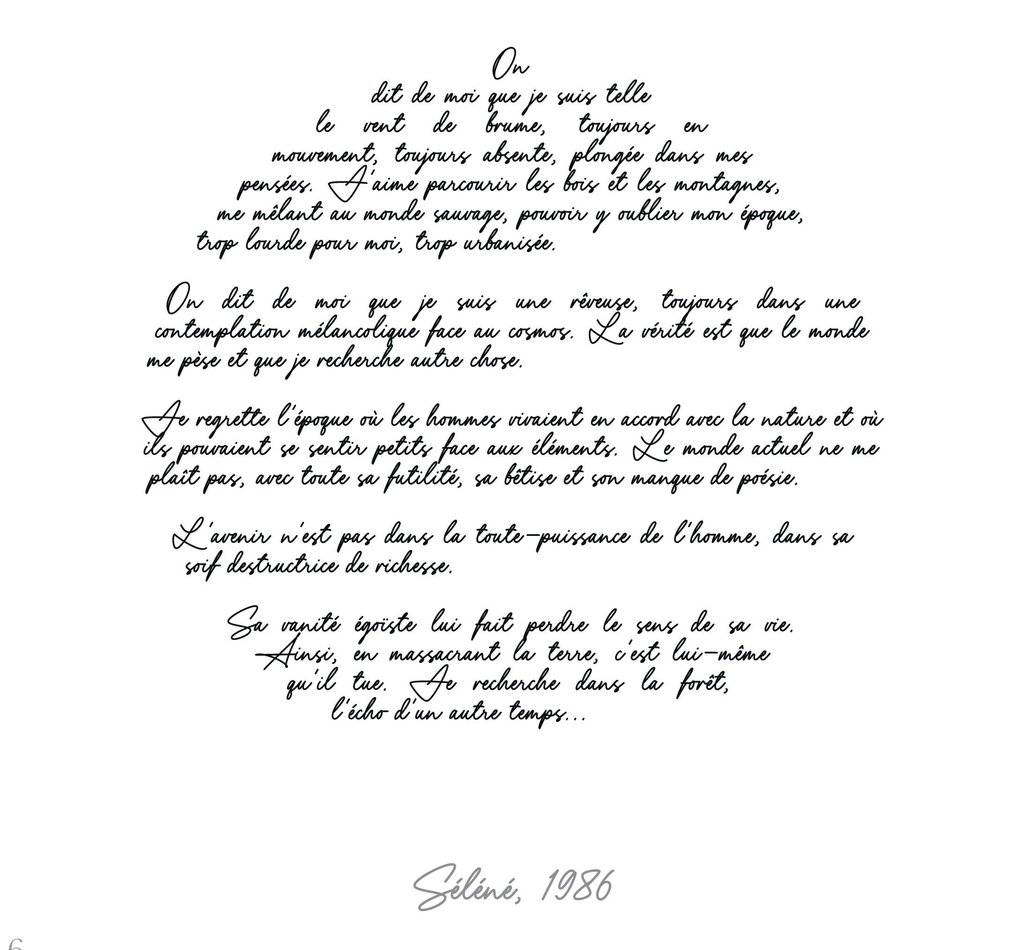 On
dit de moi que je suis telle
le vent de brume, toujours en
mouvement, toujours absente, plongée dans mes
pensées. J'aime parcourir les bois et les montagnes,
me mêlant au monde sauvage, pouvoir y oublier mon époque,
trop lourde pour moi, trop urbanisée.
On dit de moi que je suis une rêveuse, toujours dans une
contemplation mélancolique face au cosmos. La vérité est que le monde
me pèse et que je recherche autre chose.
Je regrette l'époque où les hommes vivaient en accord avec la nature et où
ils pouvaient se sentir petits face aux éléments. Le monde actuel ne me
plaît pas, avec toute sa futilité, sa bêtise et son manque de poésie.
L'avenir n'est pas dans la toute-puissance de l'homme, dans sa
soif destructrice de richesse.
Sa vanité égoïste lui fait perdre le sens de sa vie.
Ainsi, en massacrant la terre, c'est lui-même
qu'il tue. Je recherche dans la forêt,
l'écho d'un autre temps...
Séléné, 1986
6